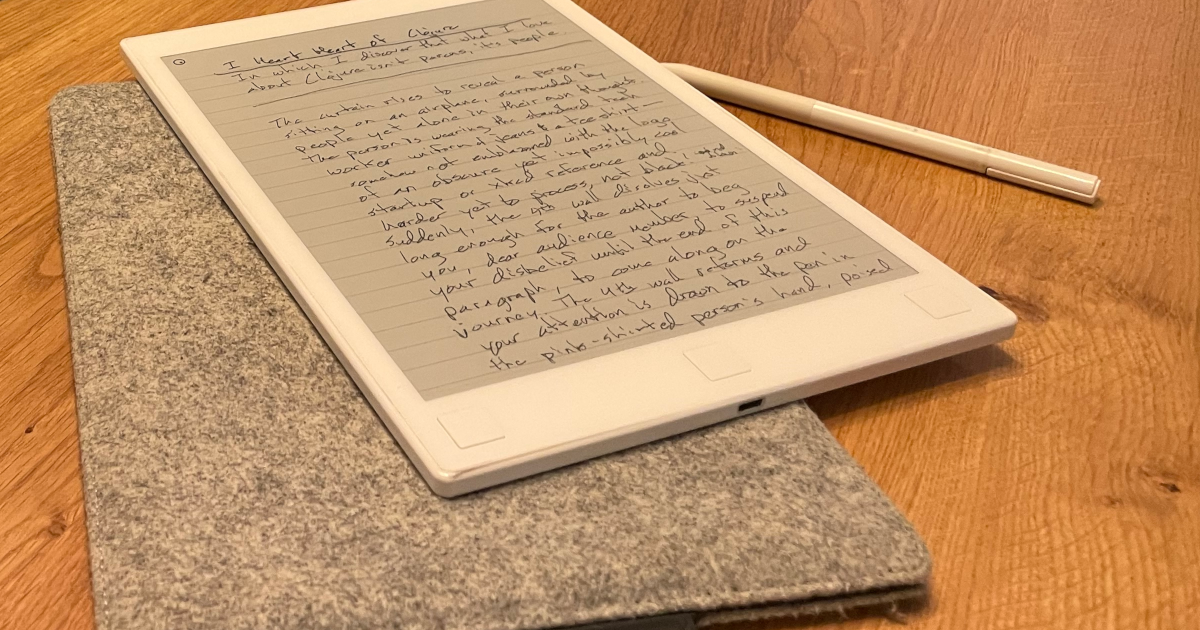 I Heart Heart of Clojure
In which I discover that what I love
about Clojure isn't parens, it's people
The curtain rises to reveal a person
sitting on an airplane, surrounded by
people yet alone in their own thoughts.
The person is wearing the standard tech
worker uniform of jeans & a tee shirt—
somehow not emblazoned with the logo
of an obscure yet impossibly cool
startup or xkcd reference and
harder yet to process, not black.
Suddenly, the 4th wall disolves just
long enough for the author to beg
you, dear audience member, to suspend
your disbelief until the end of this
paragraph, to come along on the
journey. The 4th wall reforms and
your attention is drawn to the pen in
the pink-shirted person's hand, poised